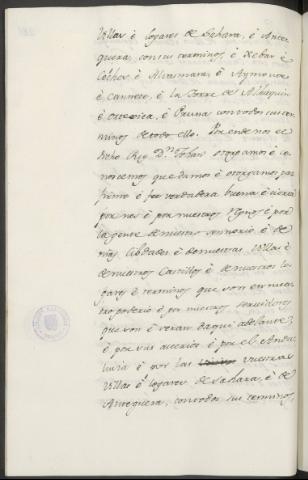 Villas è logares de Zahara, è Ante
quera, con sus terminos, è Xebar è
Cáñete, è Alcasmara, è Aymonte
è Cannete, è la Torre de Alhaquin
è Ortexica, è Pruna con todos sus ter
minos de todo ello. Por ende nos el
dicho Rey Dn. Johan otorgamos è co
noscemos que damos è otorgamos paz
firme è fee verdadera buena è cierta
por nos è por nuestros Regnos è por
la gente de nuestro sennorio, è de
ntrās Cibdades è de nuestras Villas è
de nuestros Castillos è de nuestros lo
gares è terminos que son en nues
tro poderio è por nuestros servidores
que son è seran daqui adelante,
è por vos otorgar è por el Anda
lucia è por las vuestras
Villas è logares de Zahara, è de
Antequera, con todos sus terminos,